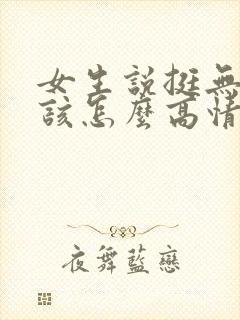 女生說挺無
該怎麼高情
夜舞藍戀